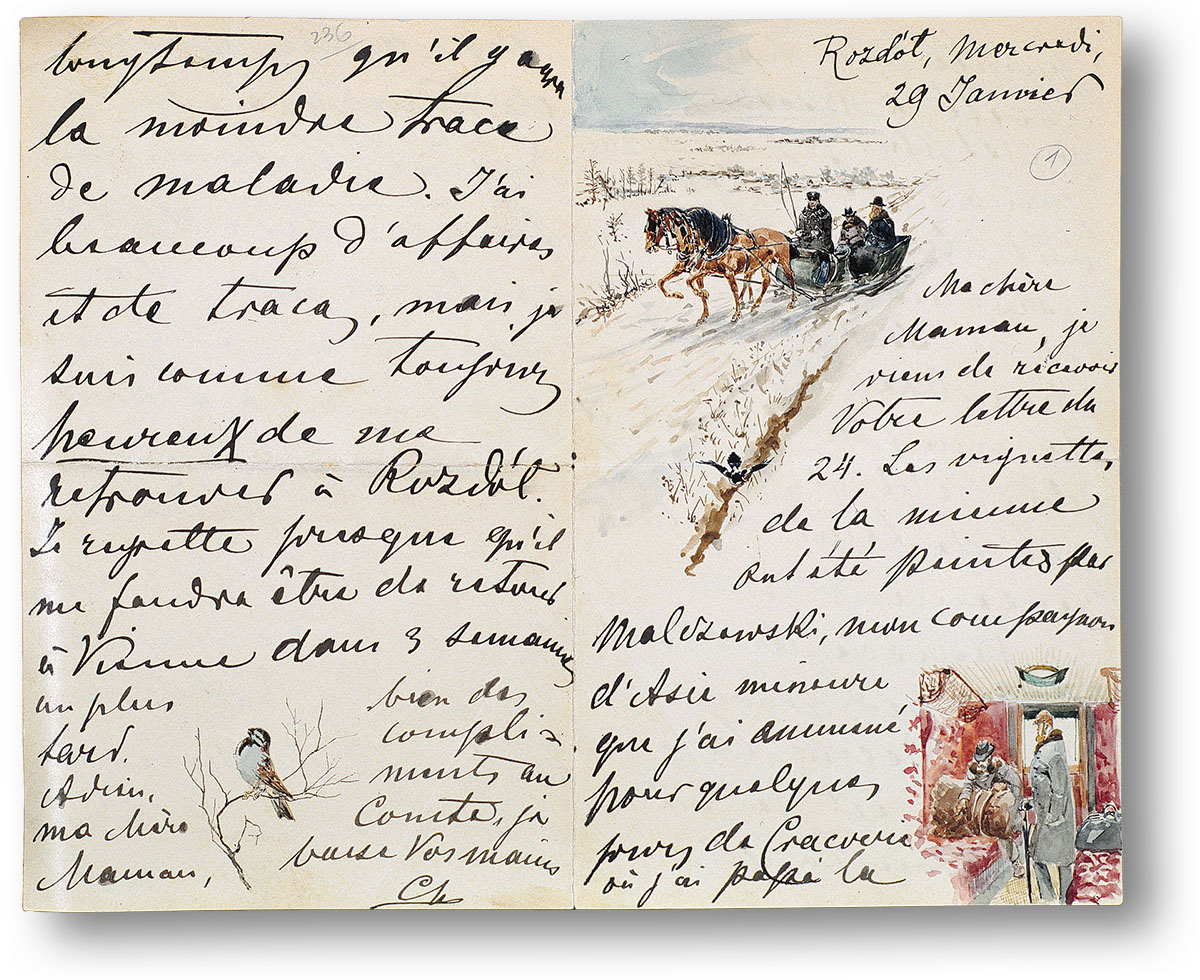 Rozdół, Mercredi,
29 Janvier
1
Ma chère
Maman, je
viens de recevoir
Votre lettre du
24. Les vignettes
de la mienne
ont été peintes par
Malczewski, mon compagnon
d'Asie mineure
que j'ai ammené
pour quelques
jours de Cracovie
où j'ai passé la
236
longtemps qu'il y aura
la moindre trace
de maladie. J'ai
beaucoup d'affaires
et de tracas, mais je
suis comme toujours
heureux de me
retrouver à Rozdół.
Je regrette presque qu'il
me faudra être de retour
à Vienne dans 3 semaines
au plus
tard.
Adieu,
ma chère
Maman,
bien des
compli-
ments au
Comte, je
baise Vos mains
Ch